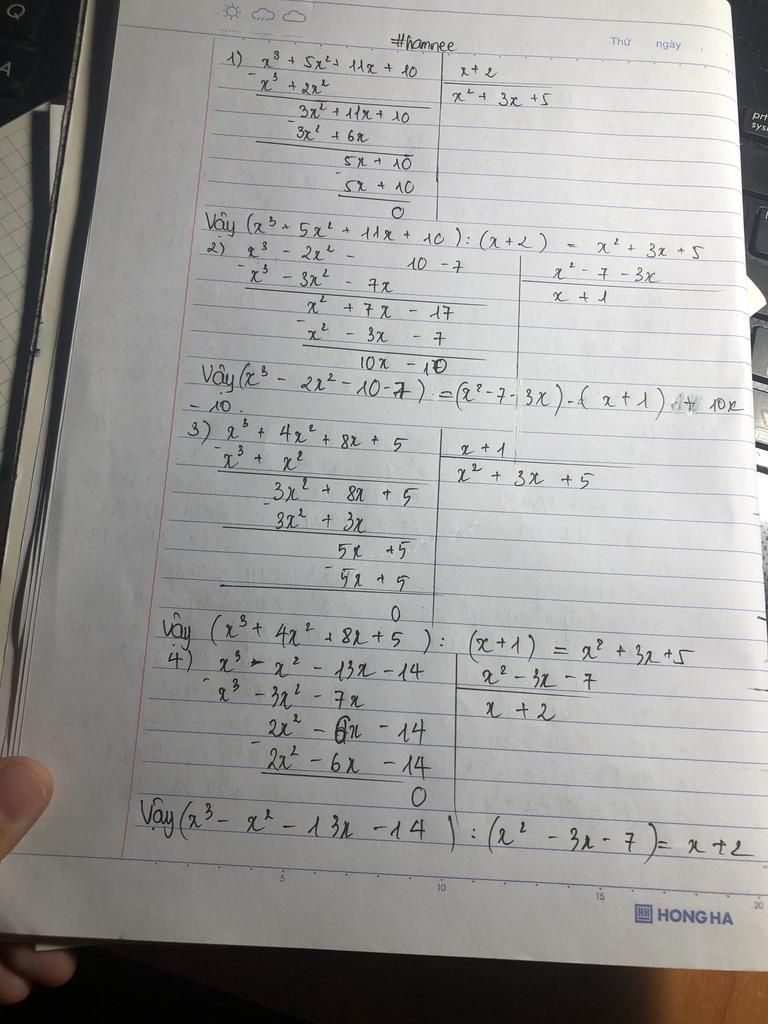 #hamnee
Thứ ngày .
1) x³ + 5x² + 11x + 10 | x+2
- x³ + 2x² | x² + 3x + 5
3x² + 11x + 10
- 3x² + 6x
5x + 10
- 5x + 10
0
Vậy (x³ + 5x² + 11x + 10) : (x+2) = x² + 3x + 5
2) x³ - 2x² - 10 - 7 | x² - 7 - 3x
- x³ - 3x² - 7x | x + 1
x² + 7x - 17
- x² - 3x - 7
10x - 10
Vậy (x³ - 2x² - 10 - 7) = (x² - 7 - 3x) - ( x + 1) + 10x
- 10.
3) x³ + 4x² + 8x + 5 | x + 1
- x³ + x² | x² + 3x + 5
3x² + 8x + 5
- 3x² + 3x
5x + 5
- 5x + 5
0
Vậy (x³ + 4x² + 8x + 5) : (x+1) = x² + 3x + 5
4) x³ - x² - 13x - 14 | x² - 3x - 7
- x³ - 3x² - 7x | x + 2
2x² - 6x - 14
- 2x² - 6x - 14
0
Vậy (x³ - x² - 13x - 14) : (x² - 3x - 7) = x + 2
5 10 15 20
HH HONG HA